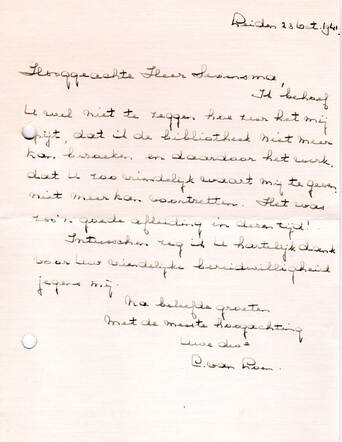 Leiden 23 Oct. 1941.
Hooggeachte Heer Sevensma,
Ik behoef
U wel niet te zeggen hoe zeer het mij
spijt, dat ik de bibliotheek niet meer
kan bezoeken en daardoor het werk,
dat U zoo vriendelijk waart mij te geven
niet meer kan voortzetten. Het was
zoo'n goede afleiding in dezen tijd!
Intusschen zeg ik U hartelijk dank
voor Uw vriendelijke bereidwilligheid
jegens mij.
Na beleefde groeten
Met de meeste hoogachting
Uwe dw.
van